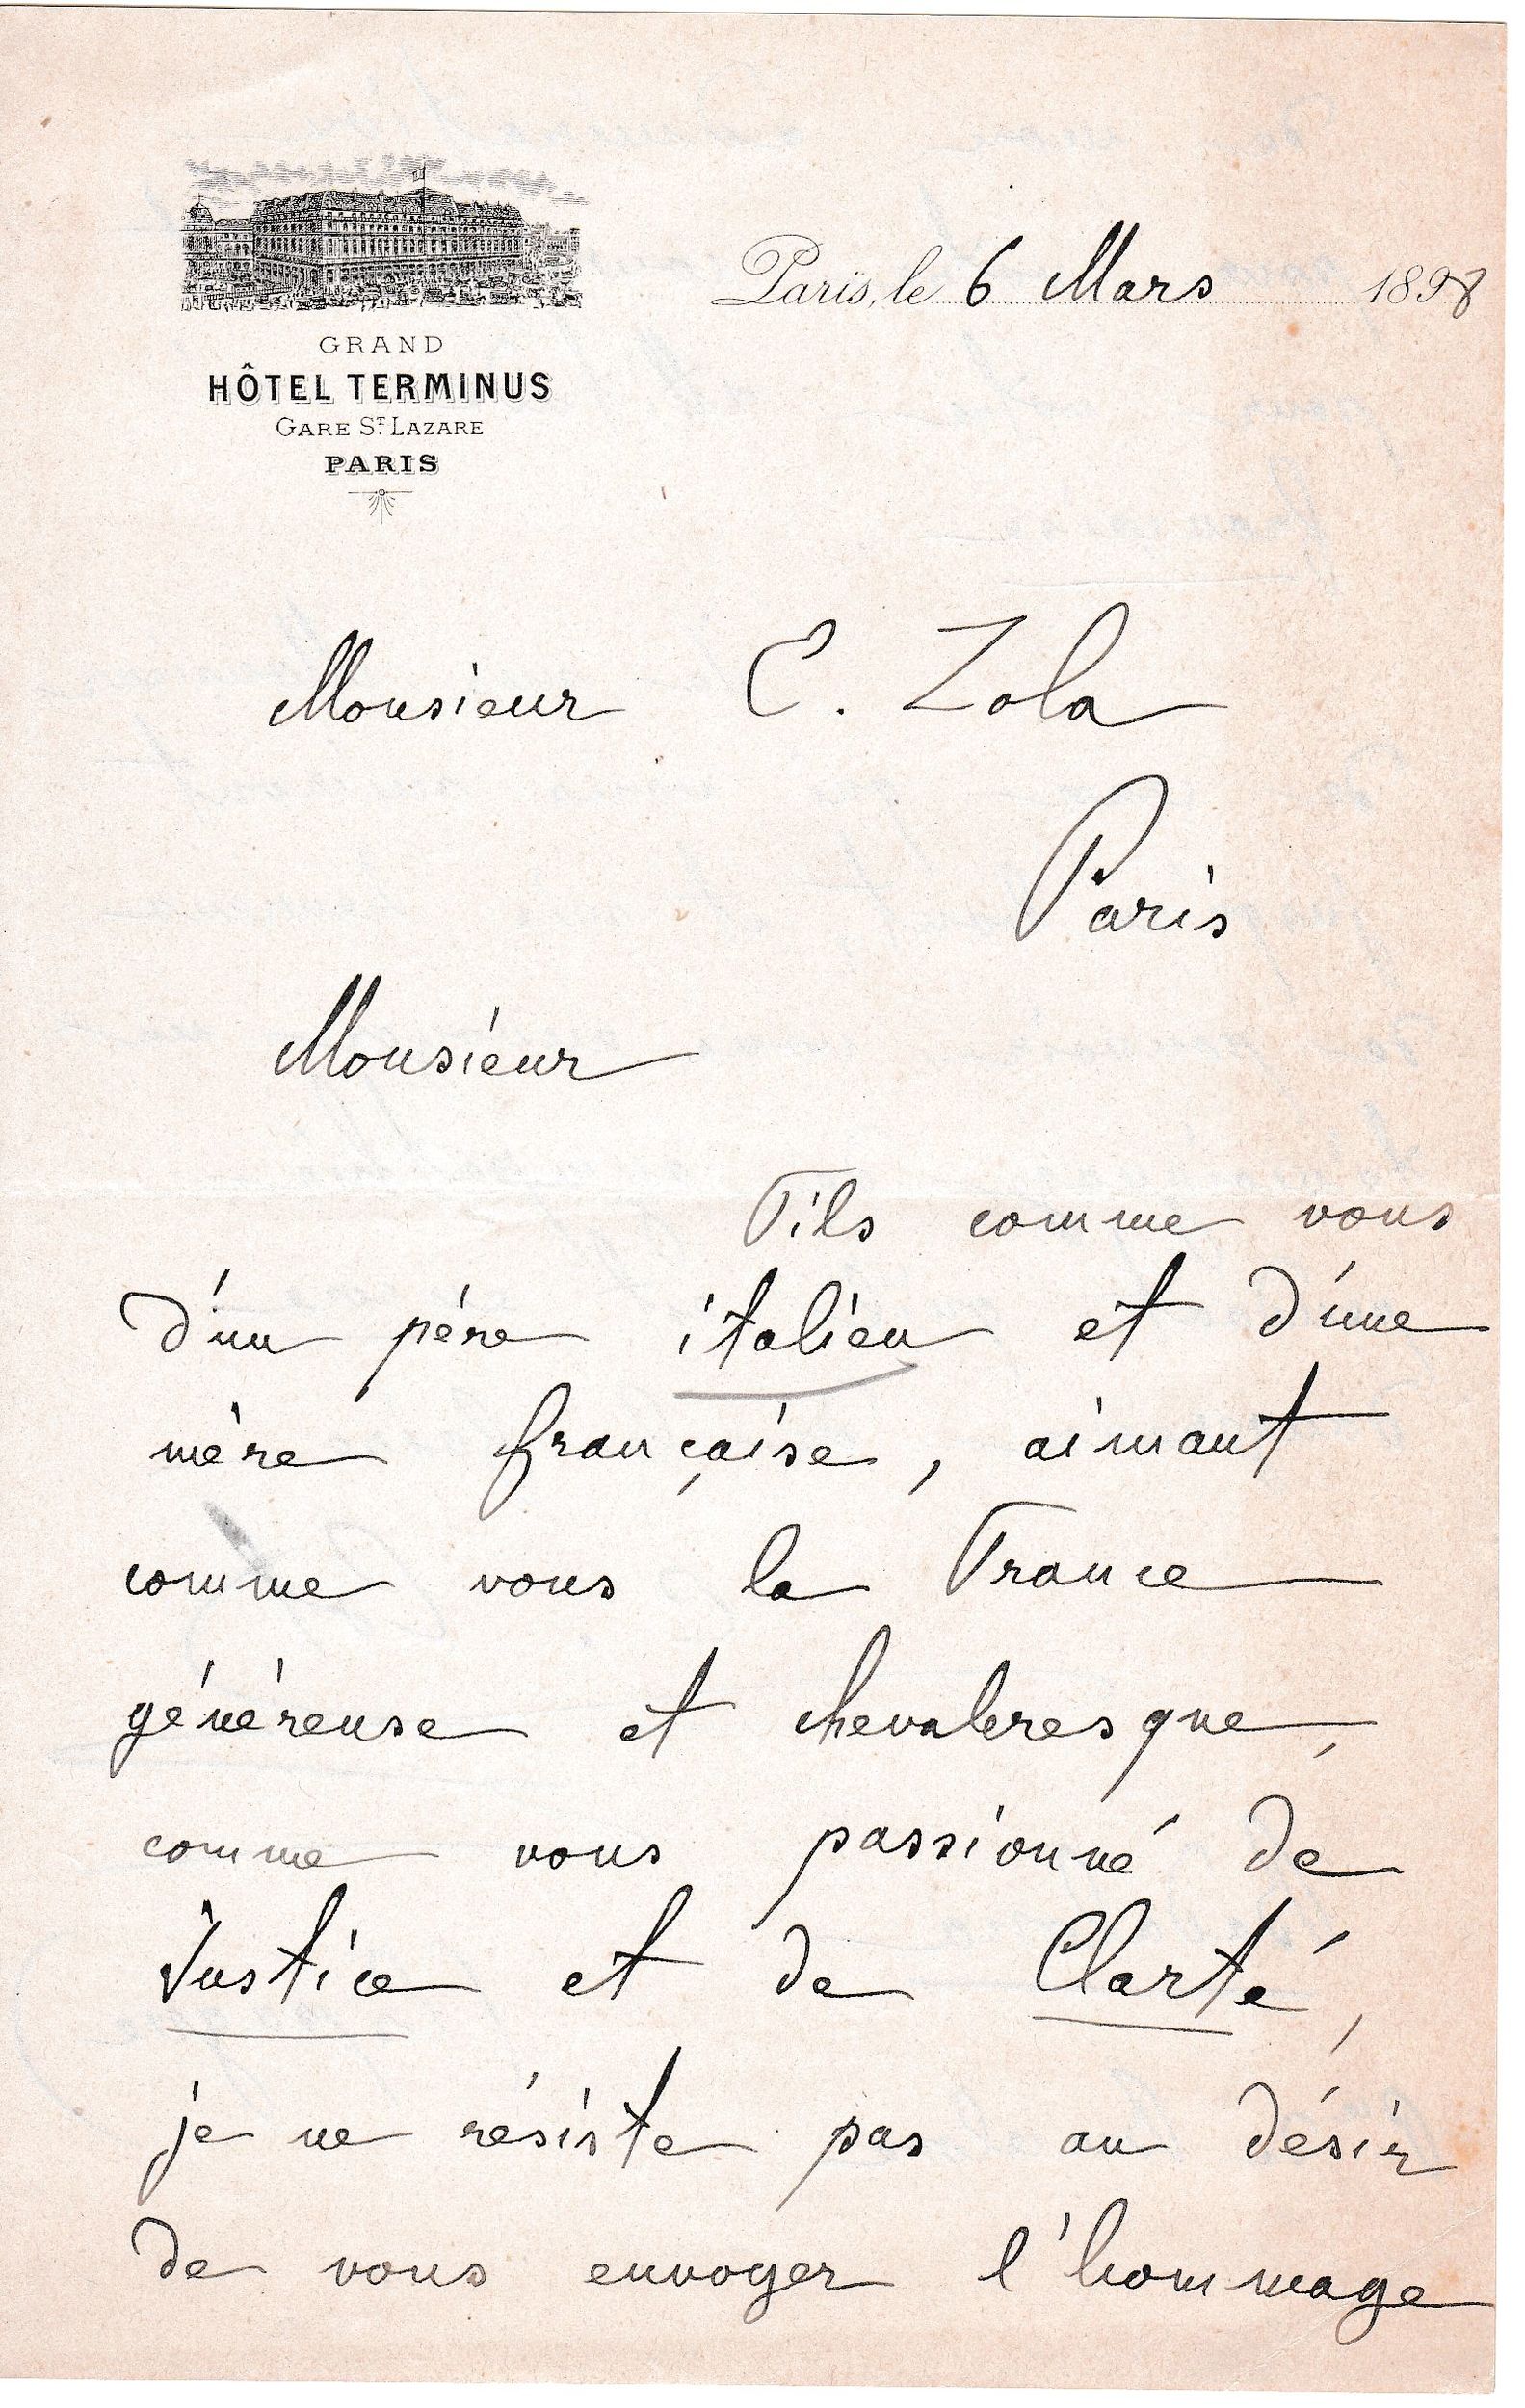 GRAND
HÔTEL TERMINUS
GARE ST LAZARE
PARIS
Paris, le 6 Mars 1898
Monsieur E. Zola
Paris
Monsieur
Fils comme vous
d'un père italien et d'une
mère française, aimant
comme vous la France
généreuse et chevaleresque,
comme vous passionné de
Justice et de Clarté,
je ne résiste pas au désir
de vous envoyer l'hommage